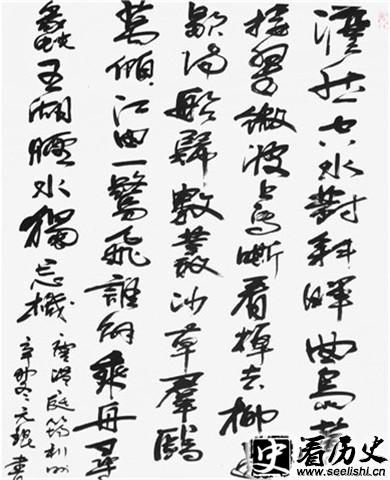 澹然空水對斜暉曲島蒼
接翠微波上馬嘶看棹去柳邊
歇待船歸數叢沙草群鷗
萬頃江田一鷺飛誰解乘舟尋
蠡五湖煙水獨忘機
唐溫庭筠利州
辛卯冬元 書
史 看历史
www.seelishi.cn